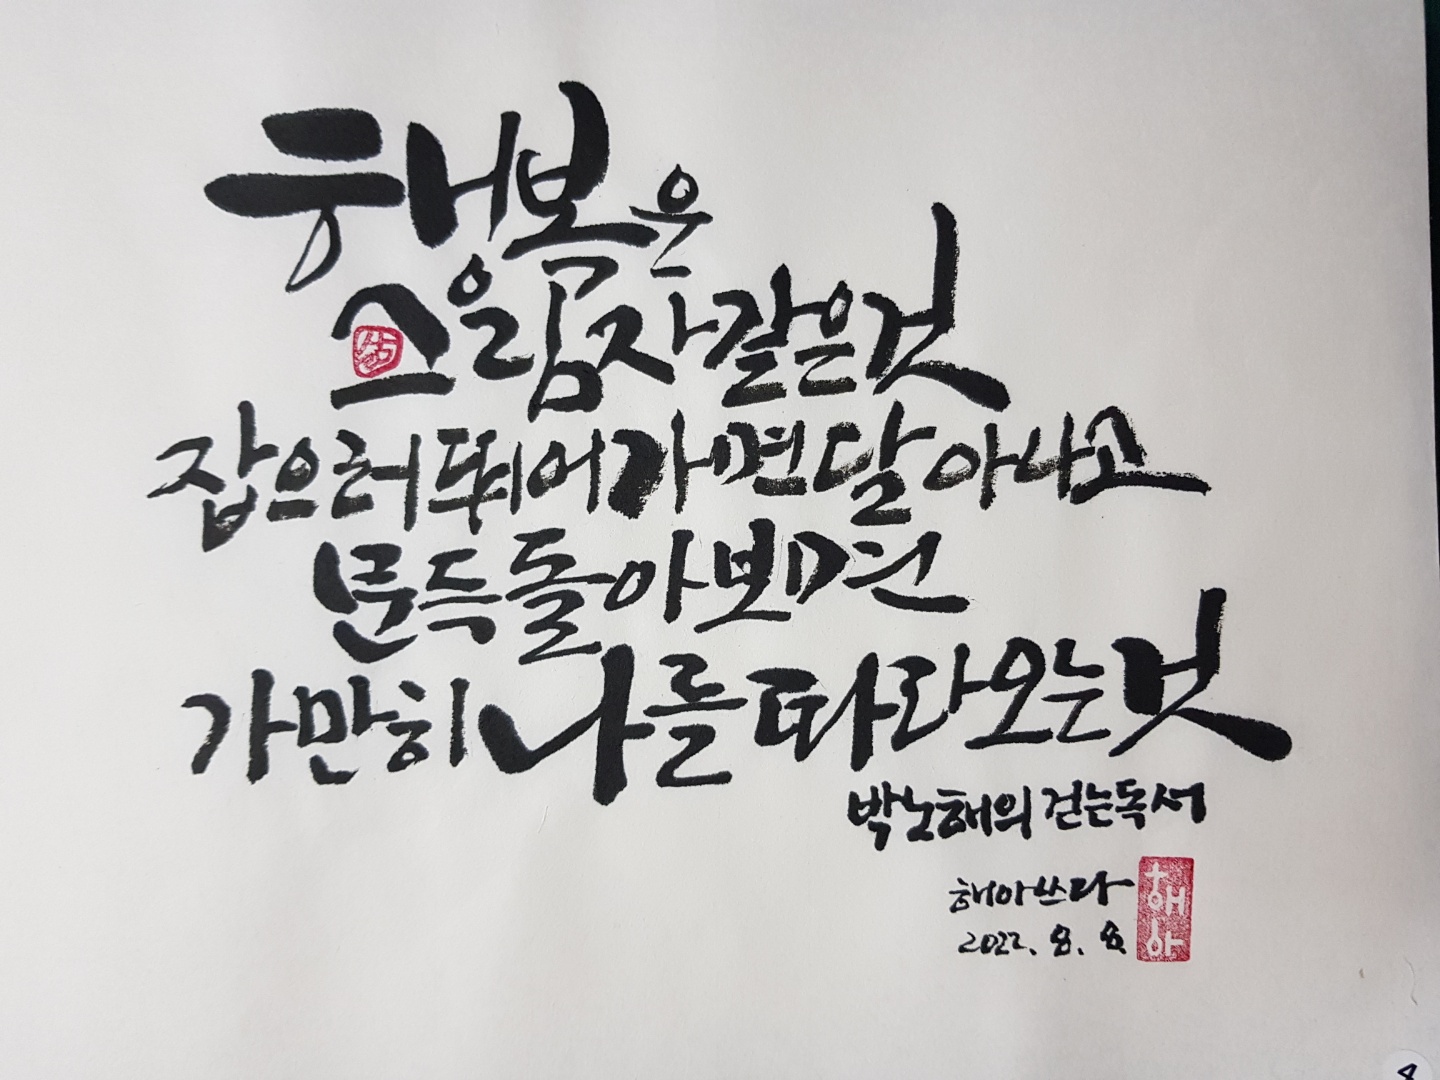 행복은
그을림자같은것
잡으려뛰어가면달아나고
문득돌아보면
가만히나를따라오는것
박노해의 걷는독서
해아쓰다
2022. 8. 8.
해아
8